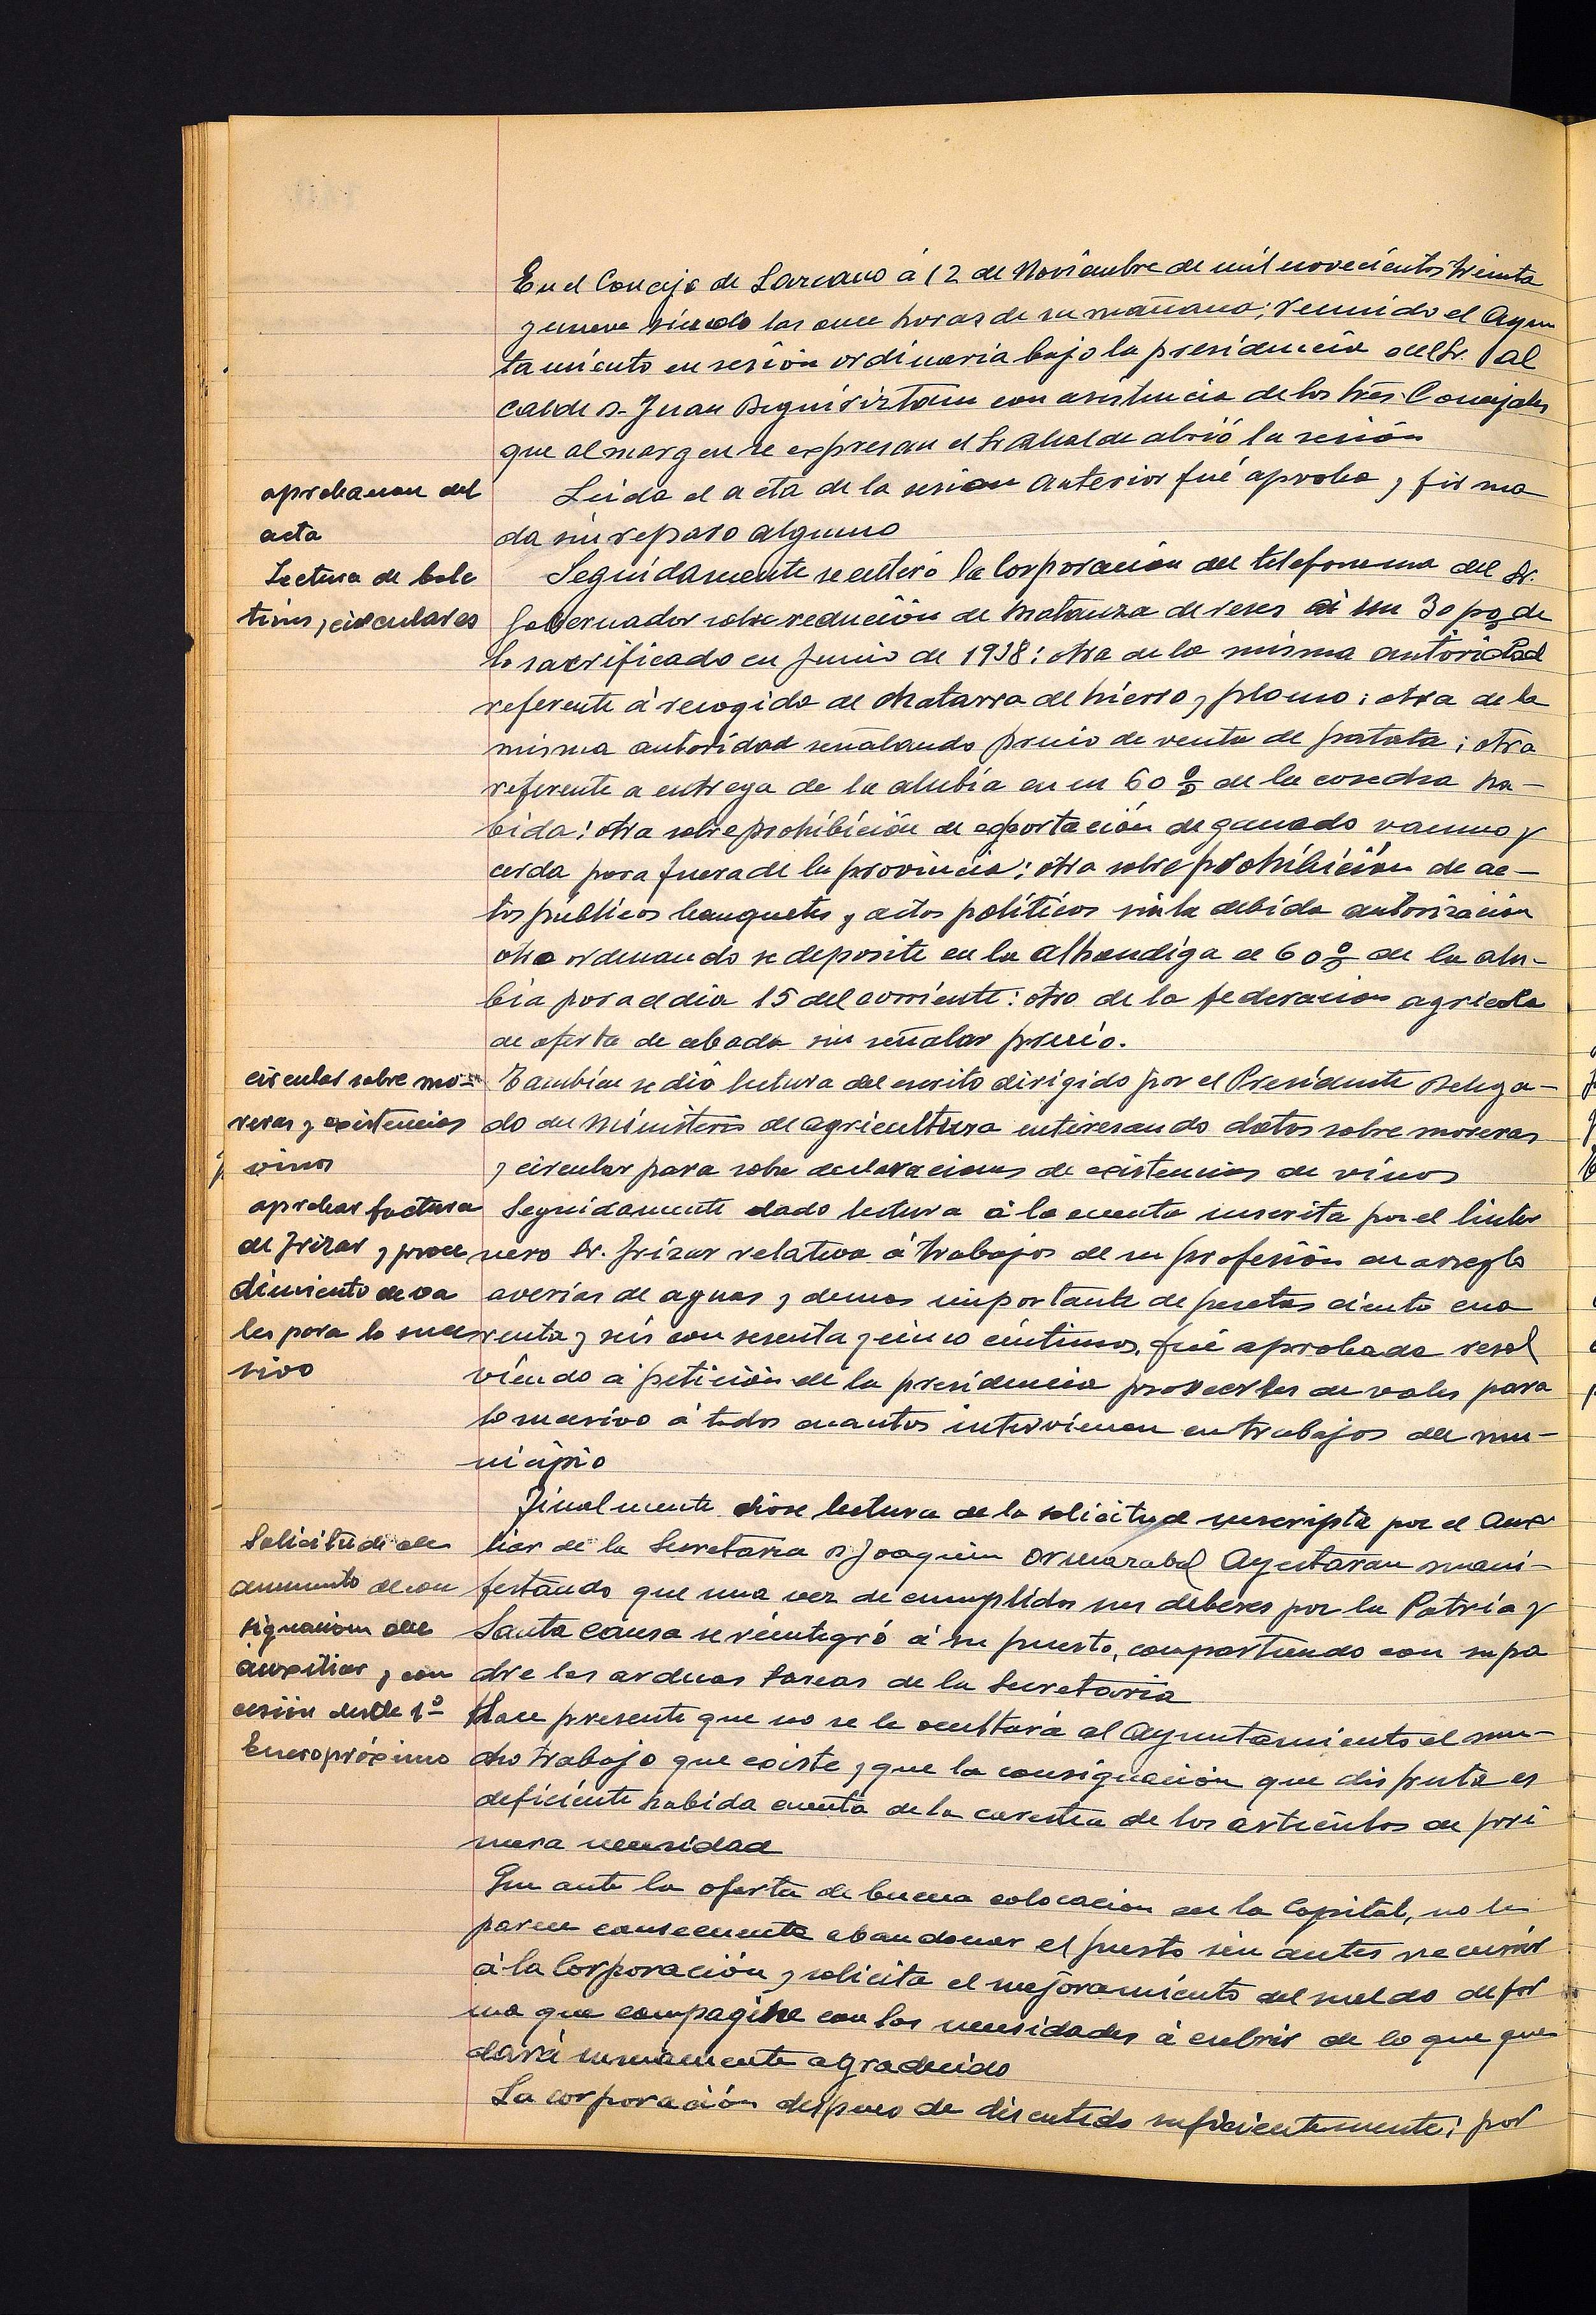 En el Concejo de Lazcano á 12 de Noviembre de mil novecientos treinta
y nueve siendo las once horas de su mañana; reunido el Ayun
tamiento en sesión ordinaria bajo la presidencia del Sr. Al
calde D. Juan Beguiristain con asistencia de los tres Concejales
que al margen se expresan el Sr Alcalde abrió la sesión
aprobacion del
acta
Leida el acta de la sesion anterior fué aproba y firma
da sin reparo alguno
Lectura de bole
tines, circulares
Seguidamente se enteró la Corporación del telefonema del Sr.
Gobernador sobre redución de matanza de reses á un 30 po% de
lo sacrificado en Junio de 1938: otra de la misma autoridad
referente á recogida de chatarra de hierro y plomo: otra de la
misma autoridad señalando precio de venta de patata; otra
referente a entrega de la alubia en un 60 % de la cosecha ha-
bida: otra sobre prohibición de exportación de ganado vacuno y
cerda para fuera de la provincia; otra sobre prohibición de ac-
tos públicos banquetes y actos políticos sin la debida autorización
otra ordenando se deposite en la Alhondiga el 60 % de la alu-
bia para el dia 15 del corriente: otro de la federacion agricola
de oferta de cebada sin señalar precio.
circular sobre mo-
reras y existencias
vinos
También se dió lectura del escrito dirigido por el Presidente Delega-
do del Ministerio de Agricultura interesando datos sobre moreras
y circular para sobre declaraciones de existencias de vinos
aprobar factura
de Irizar y proce
dimiento de va
les para lo suce
sivo
Seguidamente dado lectura á la cuenta suscrita por el linter
nero Sr. Irizar relativa á trabajos de su profesión en arreglo
averias de aguas y demas importante de pesetas ciento cua
renta y seis con sesenta y cinco céntimos, fué aprobada resol
viendo á petición de la presidencia proveerles de vales para
lo sucesivo á todos cuantos intervienen en trabajos del mu-
nicipio
Solicitud de
aumento de con
signacion del
auxiliar y con
cesión desde 1º
Enero próximo
Finalmente dióse lectura de la solicitud suscripta por el Auxi
liar de la Secretaria D Joaquin Ormazabal Ayestaran mani-
festando que una vez de cumplidos sus deberes por la Patria y
Santa Causa se reintegró á su puesto, compartiendo con su pa
dre las arduas tareas de la Secretaria
Hace presente que no se le ocultará al Ayuntamiento el mu-
cho trabajo que existe y que la consignación que disfruta es
deficiente habida cuenta de la carestia de los articulos de pri
mera necesidad
Que ante la oferta de buena colocacion en la Capital, no le
parece consecuente abandonar el puesto sin antes recurrir
á la Corporación y solicita el mejoramiento del sueldo de for
ma que compagine con las necesidades á cubrir de lo que que
dará sumamente agradecido
La corporación despues de discutido suficientemente; por